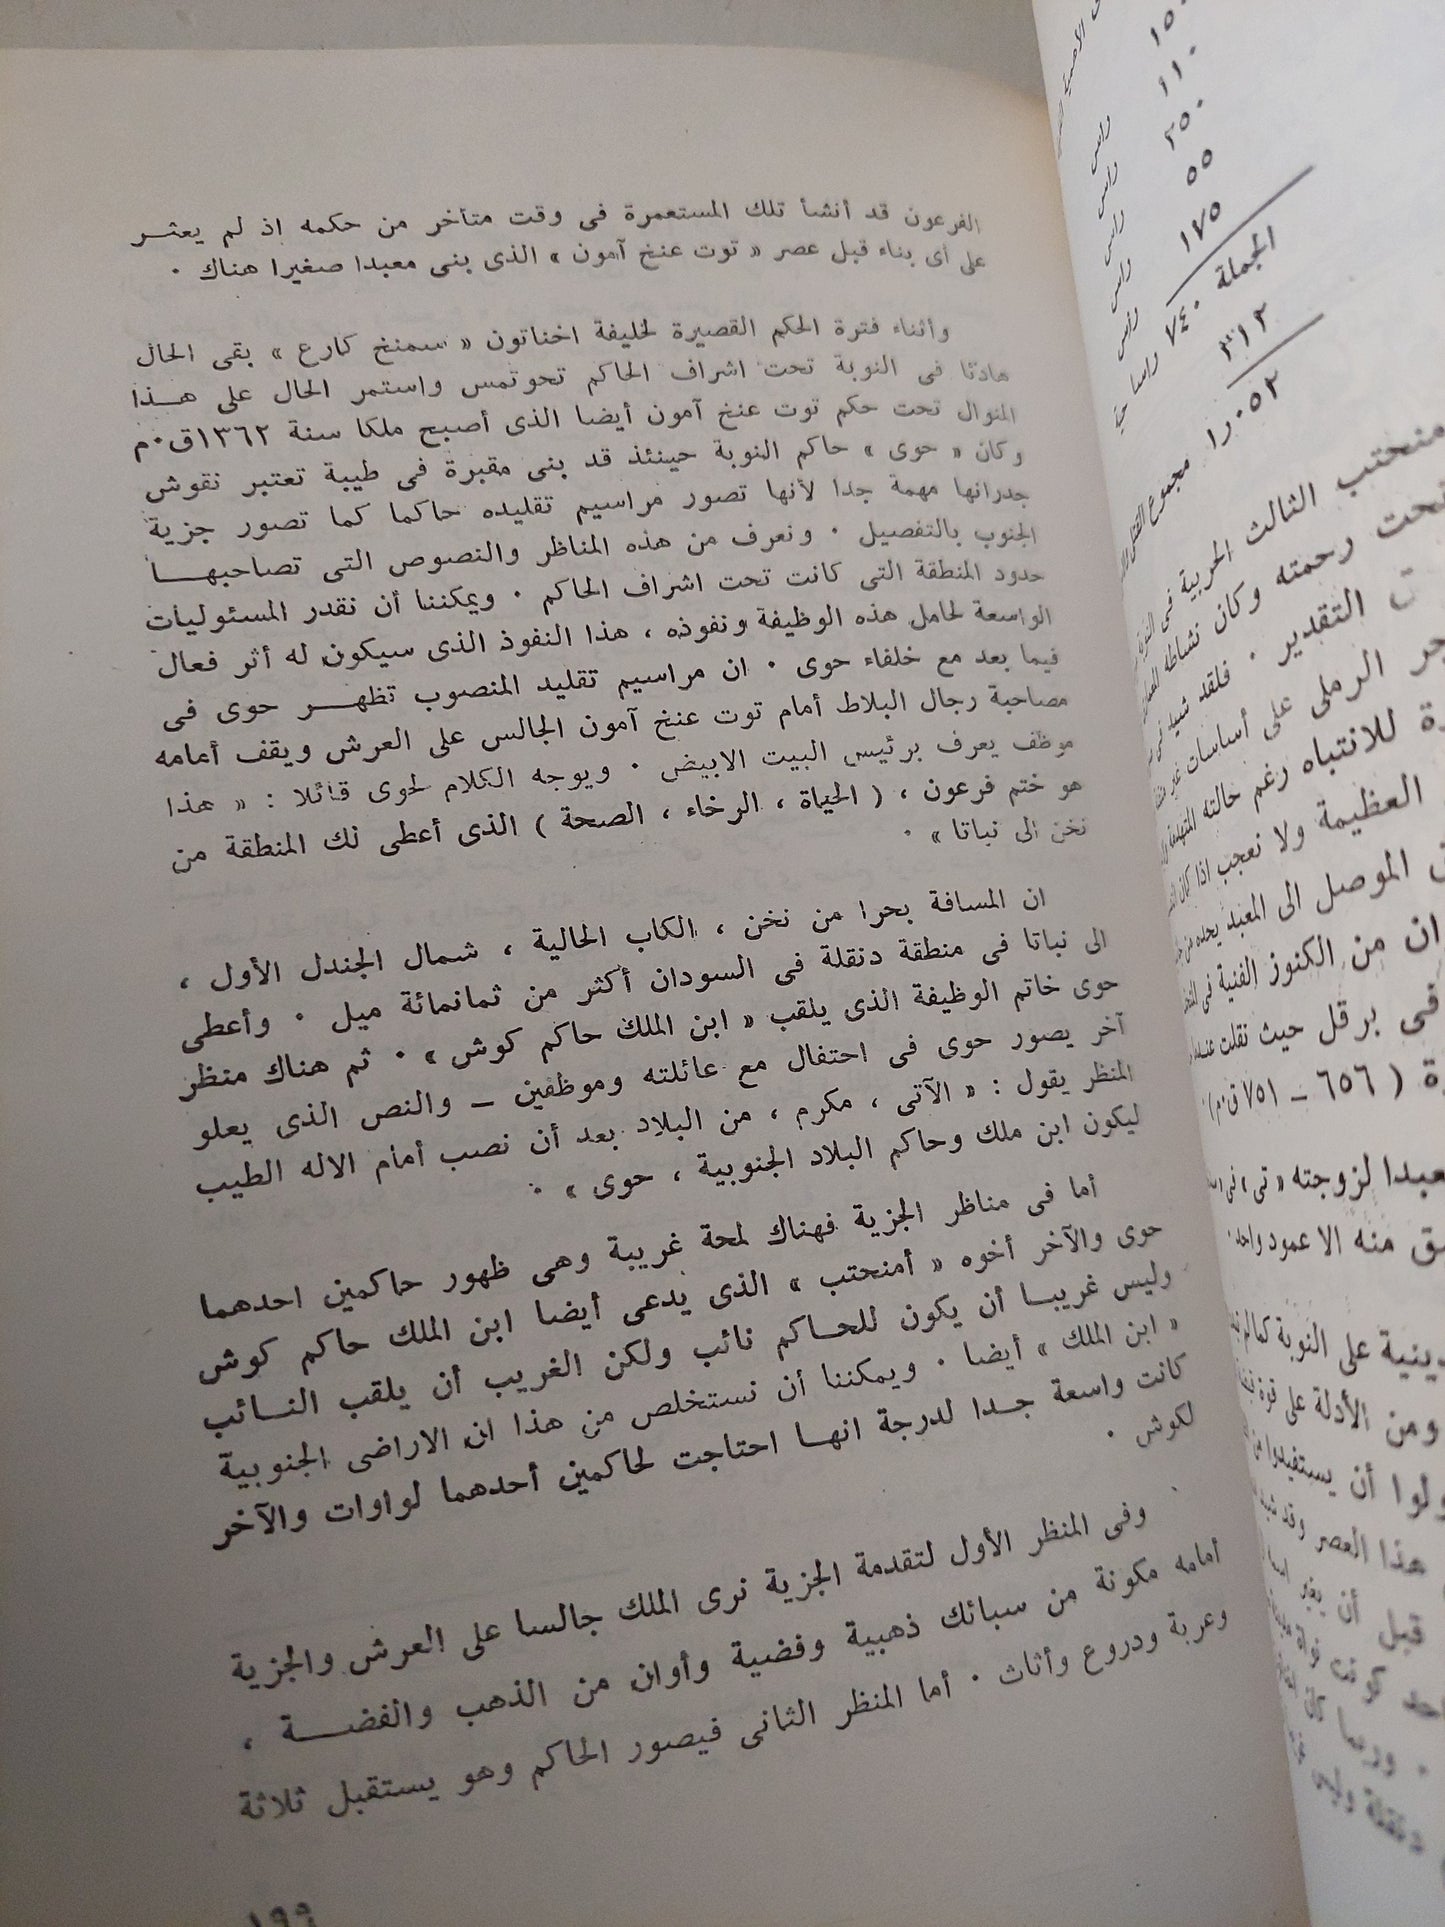 الفرعون قد أنشأ تلك المستعمرة فى وقت متأخر من حكمه اذ لم يعثـــر
على أى بناء قبل عصر « توت عنخ آمون » الذى بنى معبدا صغيرا هناك ٠
وأثناء فترة الحكم القصيرة لخليفة اخناتون « سمنخ كارع » بقى الحال
هادئا فى النوبة تحت اشراف الحاكم تحوتمس واستمر الحال على هـــذا
المنوال تحت حكم توت عنخ آمون أيضا الذى أصبح ملكا سنة ١٣٦٢ق٠م
وكان « حوى » حاكم النوبة حينئذ قد بنى مقبرة فى طيبة تعتبر نقوش
جدرانها مهمة جدا لأنها تصور مراسيم تقليده حاكما كما تصور جزية
الجنوب بالتفصيل ٠ ونعرف من هذه المناظر والنصوص التى تصاحبهـــا
حدود المنطقة التى كانت تحت اشراف الحاكم ٠ ويمكننا أن نقدر المسئوليات
الواسعة لحامل هذه الوظيفة ونفوذه ، هذا النفوذ الذى سيكون له أثر فعال
فيما بعد مع خلفاء حوى ٠ ان مراسيم تقليد المنصوب تظهـــر حوى فى
مصاحبة رجال البلاط أمام توت عنخ آمون الجالس على العرش ويقف أمامه
موظف يعرف برئيس البيت الابيض ٠ ويوجه الكلام لحوى قائلا : « هذا
هو ختم فرعون ، ( الحياة ، الرخاء ، الصحة ) الذى أعطى لك المنطقة من
نخن الى نباتا » ٠
ان المسافة بحرا من نخن ، الكاب الحالية ، شمال الجندل الأول ،
الى نباتا فى منطقة دنقلة فى السودان أكثر من ثمانمائة ميل ٠ وأعطى
حوى خاتم الوظيفة الذى يلقب « ابن الملك حاكم كوش » ٠ ثم هناك منظر
آخر يصور حوى فى احتفال مع عائلته وموظفين ــ والنص الذى يعلو
المنظر يقول : « الآتى ، مكرم ، من البلاد بعد أن نصب أمام الاله الطيب
ليكون ابن ملك وحاكم البلاد الجنوبية ، حوى » ٠
أما فى مناظر الجزية فهناك لمحة غريبة وهى ظهور حاكمين احدهما
حوى والآخر أخوه « أمنحتب » الذى يدعى أيضا ابن الملك حاكم كوش
وليس غريبــا أن يكون للحــاكم نائب ولكن الغريب أن يلقب النــائب
« ابن الملك » أيضا ٠ ويمكننا أن نستخلص من هذا ان الاراضى الجنوبية
كانت واسعة جــدا لدرجة انهــا احتاجت لحاكمين أحدهما لواوات والآخر
لكوش ٠
وفى المنظر الأول لتقدمة الجزية نرى الملك جالسا على العرش والجزية
أمامه مكونة من سبائك ذهبية وفضية وأوان من الذهب والفضـــة ،
وعربة ودروع وأثاث ٠ أما المنظر الثانى فيصور الحاكم وهو يستقبل ثلاثة
راس ١١٠
راس ٢٥٠
راس ٥٥
راس ١٧٥
الجملة ٧٤٠ راسا حية
٣١٢
١٠٥٢ر مجموع
منحتب الثالث الحربية فى
تحت رحمته وكان نشاطه
التقدير ٠ فلقد شيد فى
الرملى على أساسات غير
للانتباه رغم حالته
العظيمة ولا نعجب اذا كان
الموصل الى المعبد يحده من
ان من الكنوز الفنية فى
فى برقل حيث نقلت
( ٦٥٦ ــ ٧٥١ ق٠م )
لزوجته « تى » فى
منه الا عمود واحد ٠
على النوبة كما لم
ومن الأدلة على قوة
أن يستفيدوا من
هذا العصر وقد
قبل أن يغير